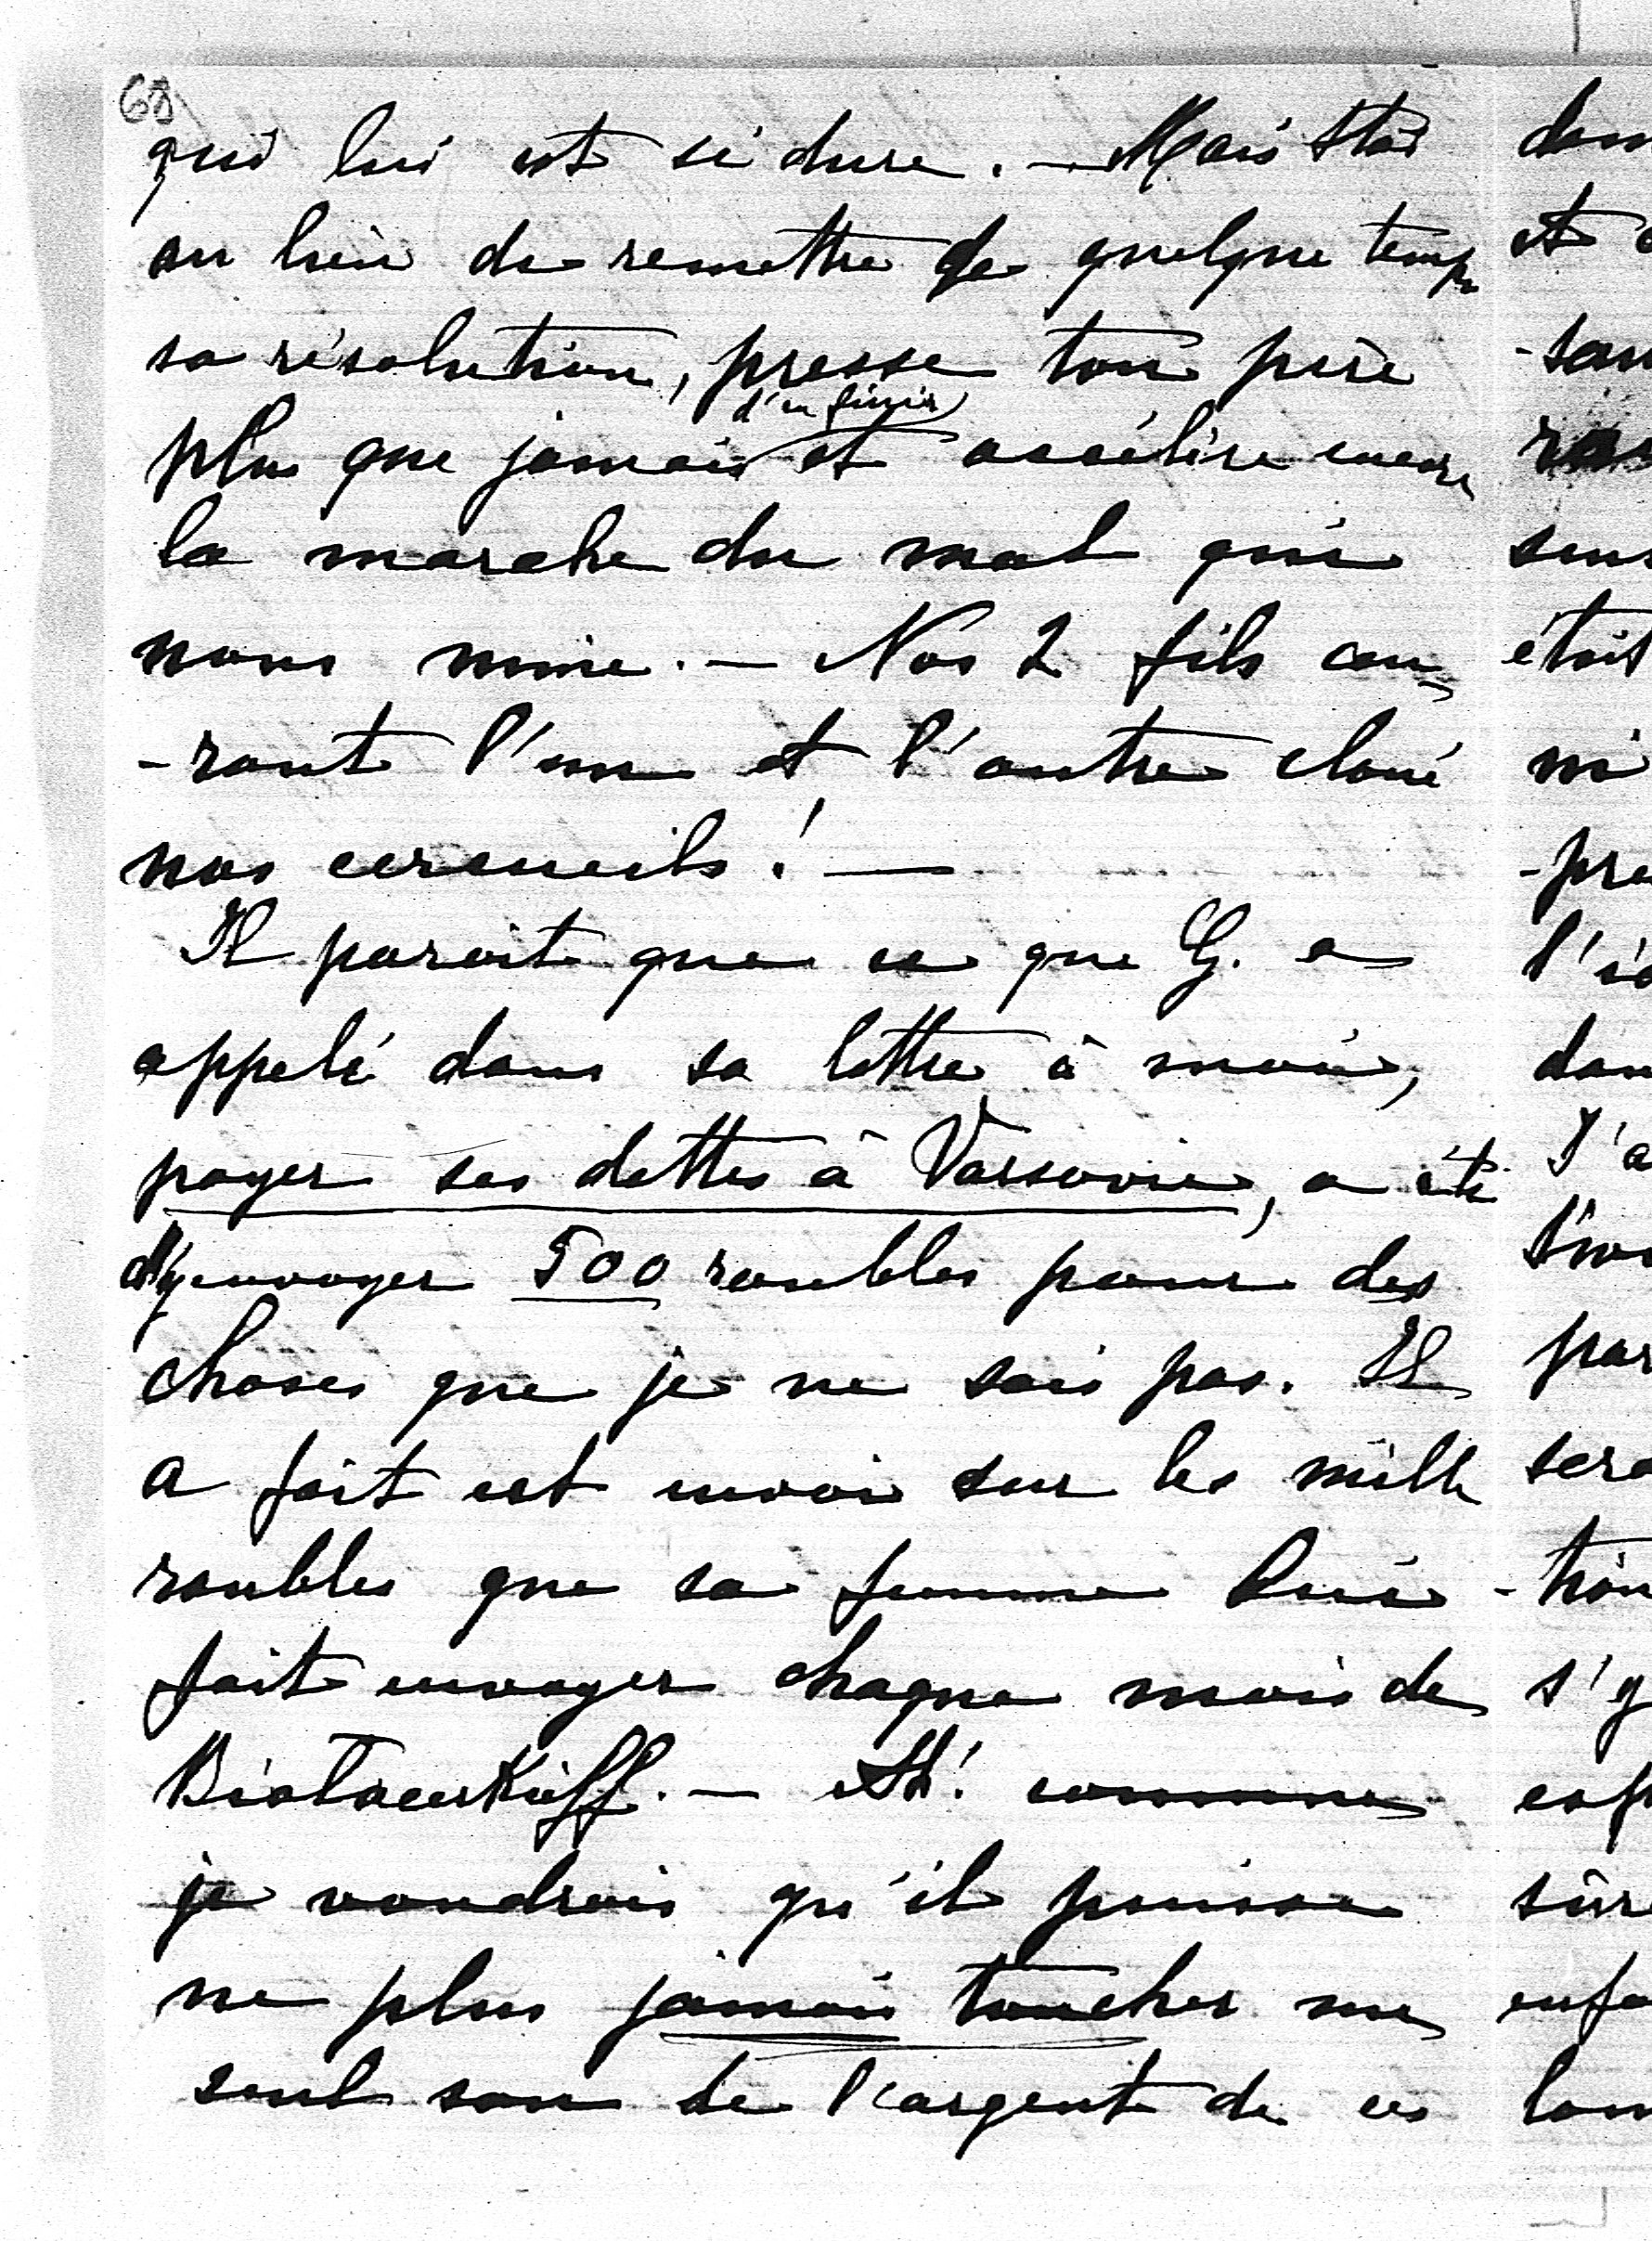 68
qui lui est si dure. — Mais Stas
au lieu de remettre de quelque temps
sa résolution, presse ton père
d'en finir
plus que jamais et accélère encore
la marche du mal qui
nous mine. — Nos 2 fils au-
-ront l'un et l'autre cloué
nos cercueils! —
Il parait que ce que G. a
appelé dans sa lettre à moi,
payer ses dettes à Varsovie, a été
d'y envoyer 500 roubles pour des
choses que je ne sais pas. Il
a fait cet envoi sur les mille
roubles que sa femme lui
fait envoyer chaque mois de
Biatacerkieff. — Ah! comme
je voudrais qu'il puisse
ne plus jamais toucher un
seul sou de l'argent de ces
dan
et
-san
sen
était
ni
-pre
l'i
dan
J'a
par
sera
-tion
s'y
esp
sûr
enfa